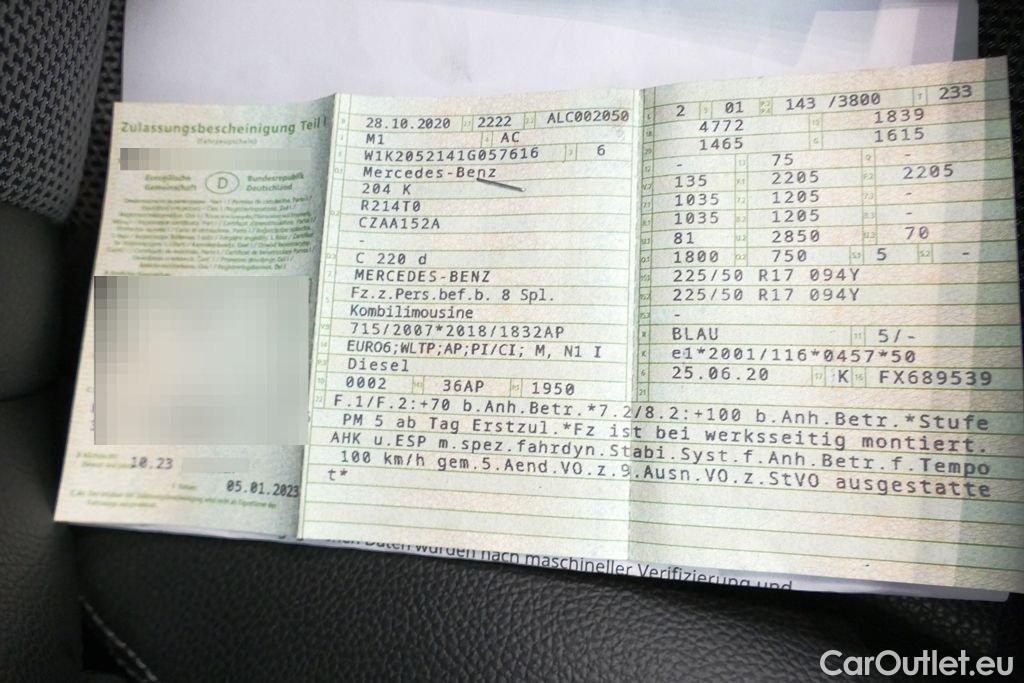 Zulassungsbescheinigung Teil I
(Fahrzeugschein)
Europäische Gemeinschaft D Bundesrepublik Deutschland
10.23
05.01.2023
28.10.2020 2222 ALC002050
M1 AC
W1K2052141G057616 6
Mercedes-Benz
204 K
R214T0
CZAA152A
-
C 220 d
MERCEDES-BENZ
Fz.z.Pers.bef.b. 8 Spl.
Kombilimousine
715/2007*2018/1832AP
EURO6;WLTP;AP;PI/CI; M, N1 I
Diesel
0002 36AP 1950
2 01 143 /3800 233
4772 1839
1465 1615
- 75 -
135 2205 2205
1035 1205 -
1035 1205 -
81 2850 70
1800 750 5 -
225/50 R17 094Y
225/50 R17 094Y
-
BLAU 5/-
e1*2001/116*0457*50
25.06.20 K FX689539
F.1/F.2:+70 b.Anh.Betr.*7.2/8.2:+100 b.Anh.Betr.*Stufe
PM 5 ab Tag Erstzul.*Fz ist bei werksseitig montiert.
AHK u.ESP m.spez.fahrdyn.Stabi.Syst.f.Anh.Betr.f.Tempo
100 km/h gem.5.Aend.VO.z.9.Ausn.VO.z.StVO ausgestatte
t*
Daten wurden nach maschineller Verifizierung und
CarOutlet.eu